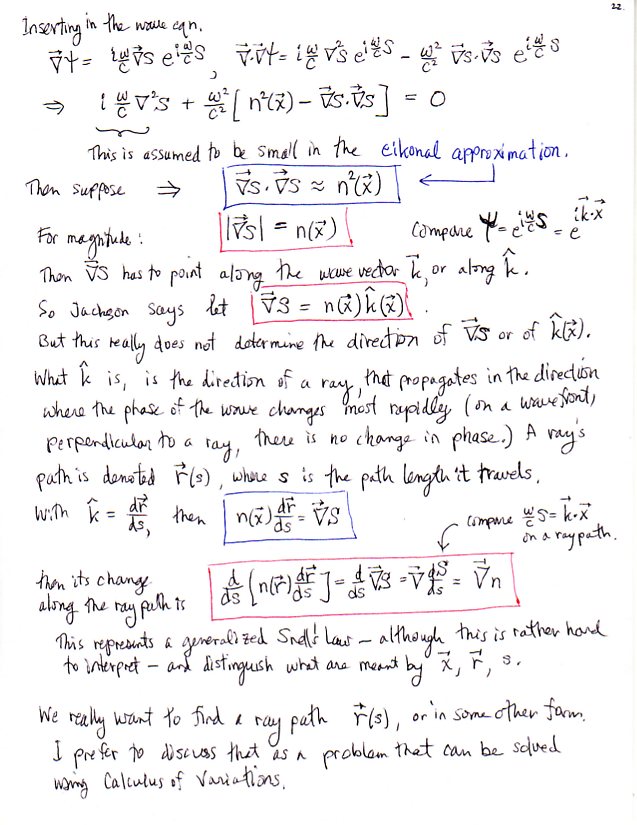 22.
Inserting in the wave eqn.
∇⃗ψ = i ω/c ∇⃗S e^{i ω/c S}, ∇⃗·∇⃗ψ = i ω/c ∇²S e^{i ω/c S} − ω²/c² ∇⃗S·∇⃗S e^{i ω/c S}
⇒ i ω/c ∇²S + ω²/c² [ n²(x⃗) − ∇⃗S·∇⃗S ] = 0
This is assumed to be small in the eikonal approximation.
Then suppose ⇒ ∇⃗S·∇⃗S ≈ n²(x⃗)
For magnitude: |∇⃗S| = n(x⃗) compare ψ = e^{i ω/c S} = e^{i k⃗·x⃗}
Then ∇⃗S has to point along the wave vector k⃗, or along k̂.
So Jackson says let ∇⃗S = n(x⃗) k̂(x⃗).
But this really does not determine the direction of ∇⃗S or of k̂(x⃗).
What k̂ is, is the direction of a ray, that propagates in the direction
where the phase of the wave changes most rapidly (on a wavefront,
perpendicular to a ray, there is no change in phase.) A ray's
path is denoted r⃗(s), where s is the path length it travels.
With k̂ = dr⃗/ds, then n(x⃗) dr⃗/ds = ∇⃗S
compare ω/c S = k⃗·x⃗
on a ray path.
then its change
along the ray path is d/ds [ n(r⃗) dr⃗/ds ] = d/ds ∇⃗S = ∇⃗ dS/ds = ∇⃗n
This represents a generalized Snell's Law – although this is rather hard
to interpret – and distinguish what are meant by x⃗, r⃗, s.
We really want to find a ray path r⃗(s), or in some other form.
I prefer to discuss that as a problem that can be solved
using Calculus of Variations.